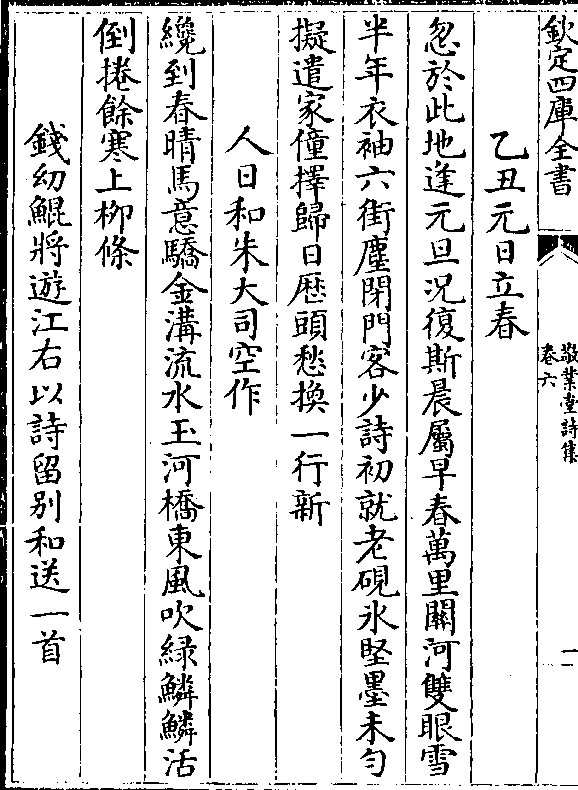 欽定四庫全書
敬業堂詩集
卷六
一
乙丑元日立春
忽於此地逢元旦況復斯晨屬早春萬里關河雙眼雪
半年衣袖六街塵閉門客少詩初就老硯氷堅墨未勻
擬遣家僮擇歸日歴頭愁換一行新
人日和朱大司空作
纔到春晴馬意驕金溝流水玉河橋東風吹緑鱗鱗活
倒捲餘寒上柳條
錢幼鯤將遊江右以詩留別和送一首